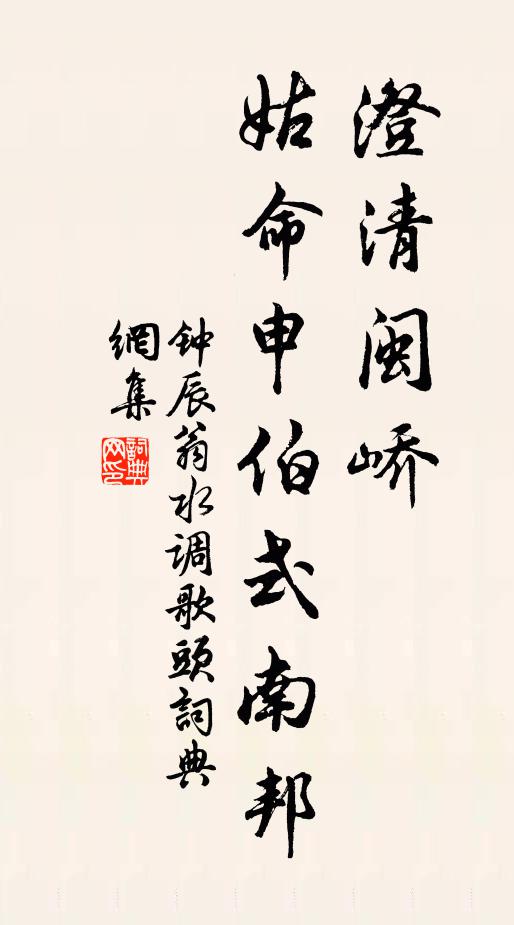 澄清闽峤
姑命申伯式南邦
钟辰翁水调歌头詞典
網集
詞典网印